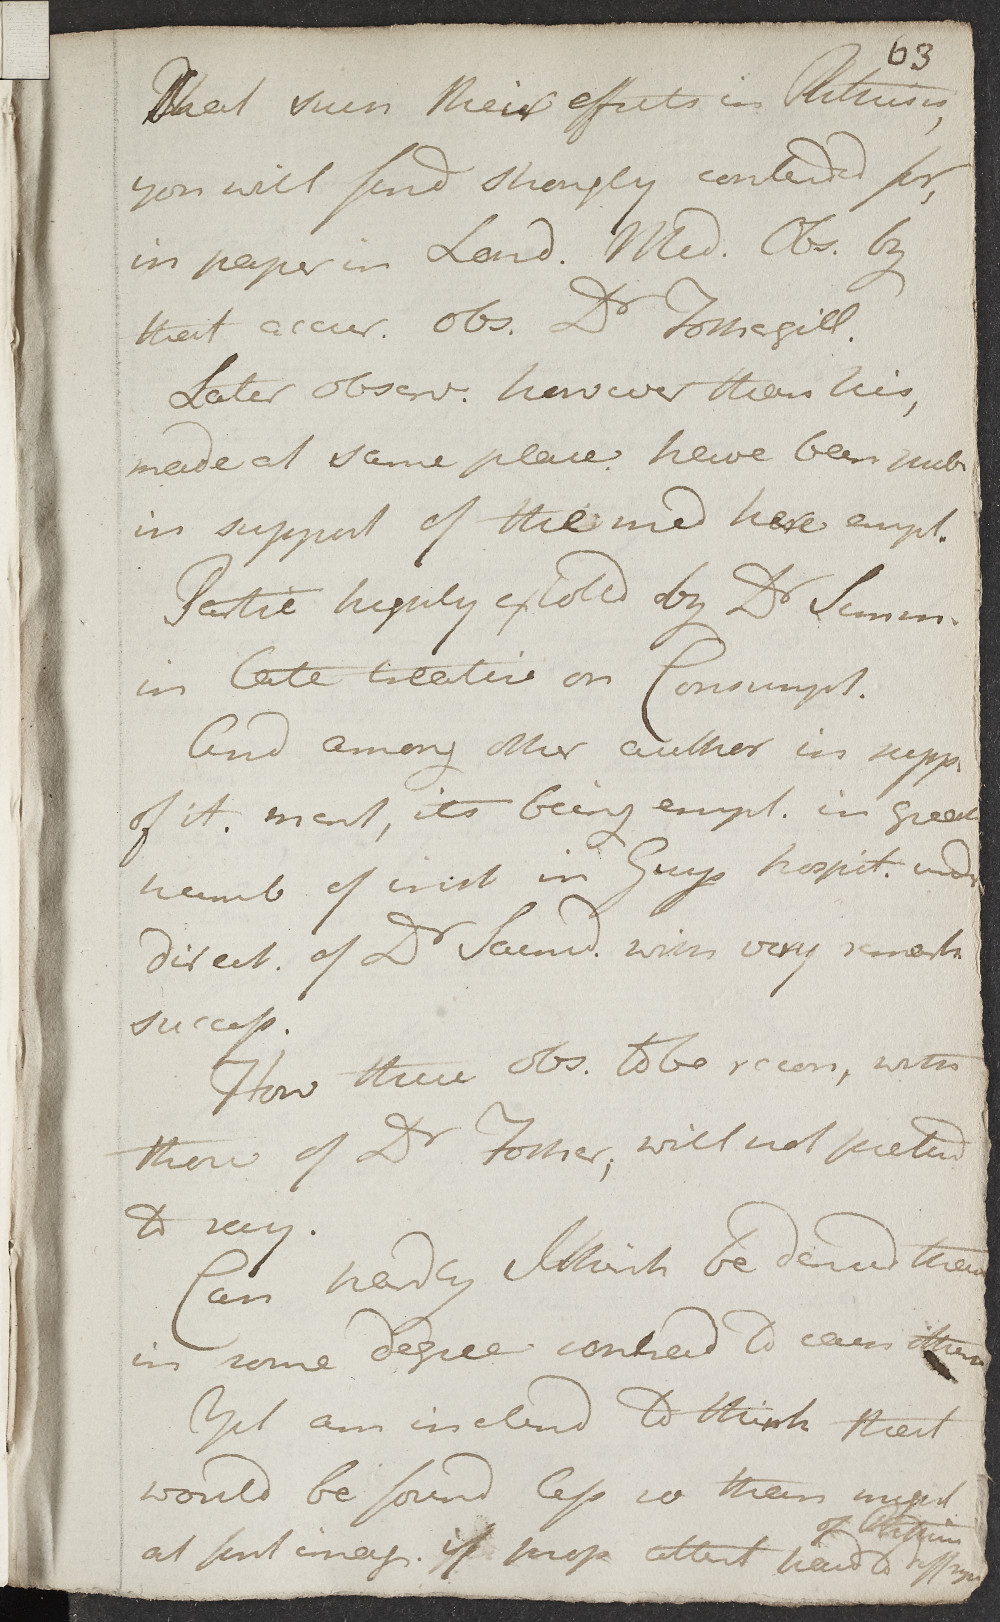 63
That such their effects in Phthisis,
you will find strongly contended for,
in paper in Lond. Med. Obs. by
that accur. obs. Dr Fothergill.
Later observ. however than his,
made at same place. have been pub.
in support of the med here empl.
Partic highly extolled by Dr Simm.
in late treatise on Consumpt.
And among other author in supp.
of it. ment, its being empl. in great
numb of inst in Guys hospit. und
direct. of Dr Saund. with very remark
success.
How these obs. to be recon, with
those of Dr Fother; will not pretend
to say.
Can hardly I think be denied them
in some degree contrad to each other
Yet am inclind to think that
would be found less so than might
at first imag. if prop attent had to
of Phthisis